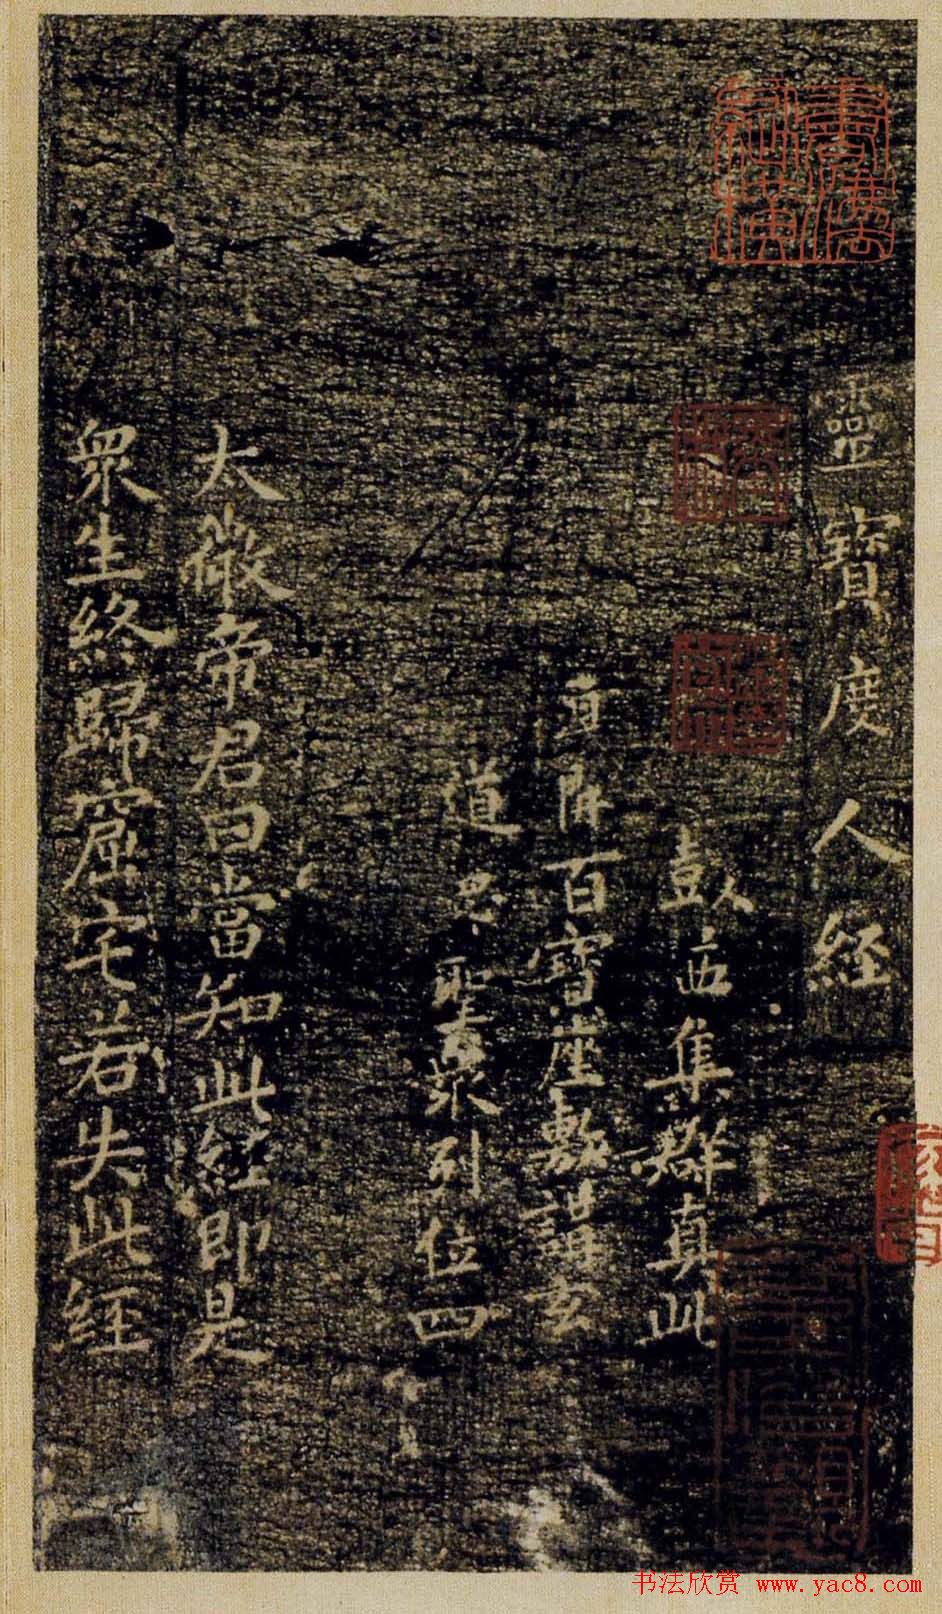 靈寶度人經
集群真此
百寶座敷講玄
道
聖眾列位四
太微帝君曰當知此經即是
眾生終歸窟宅若失此經
书法欣赏 www.yac8.com